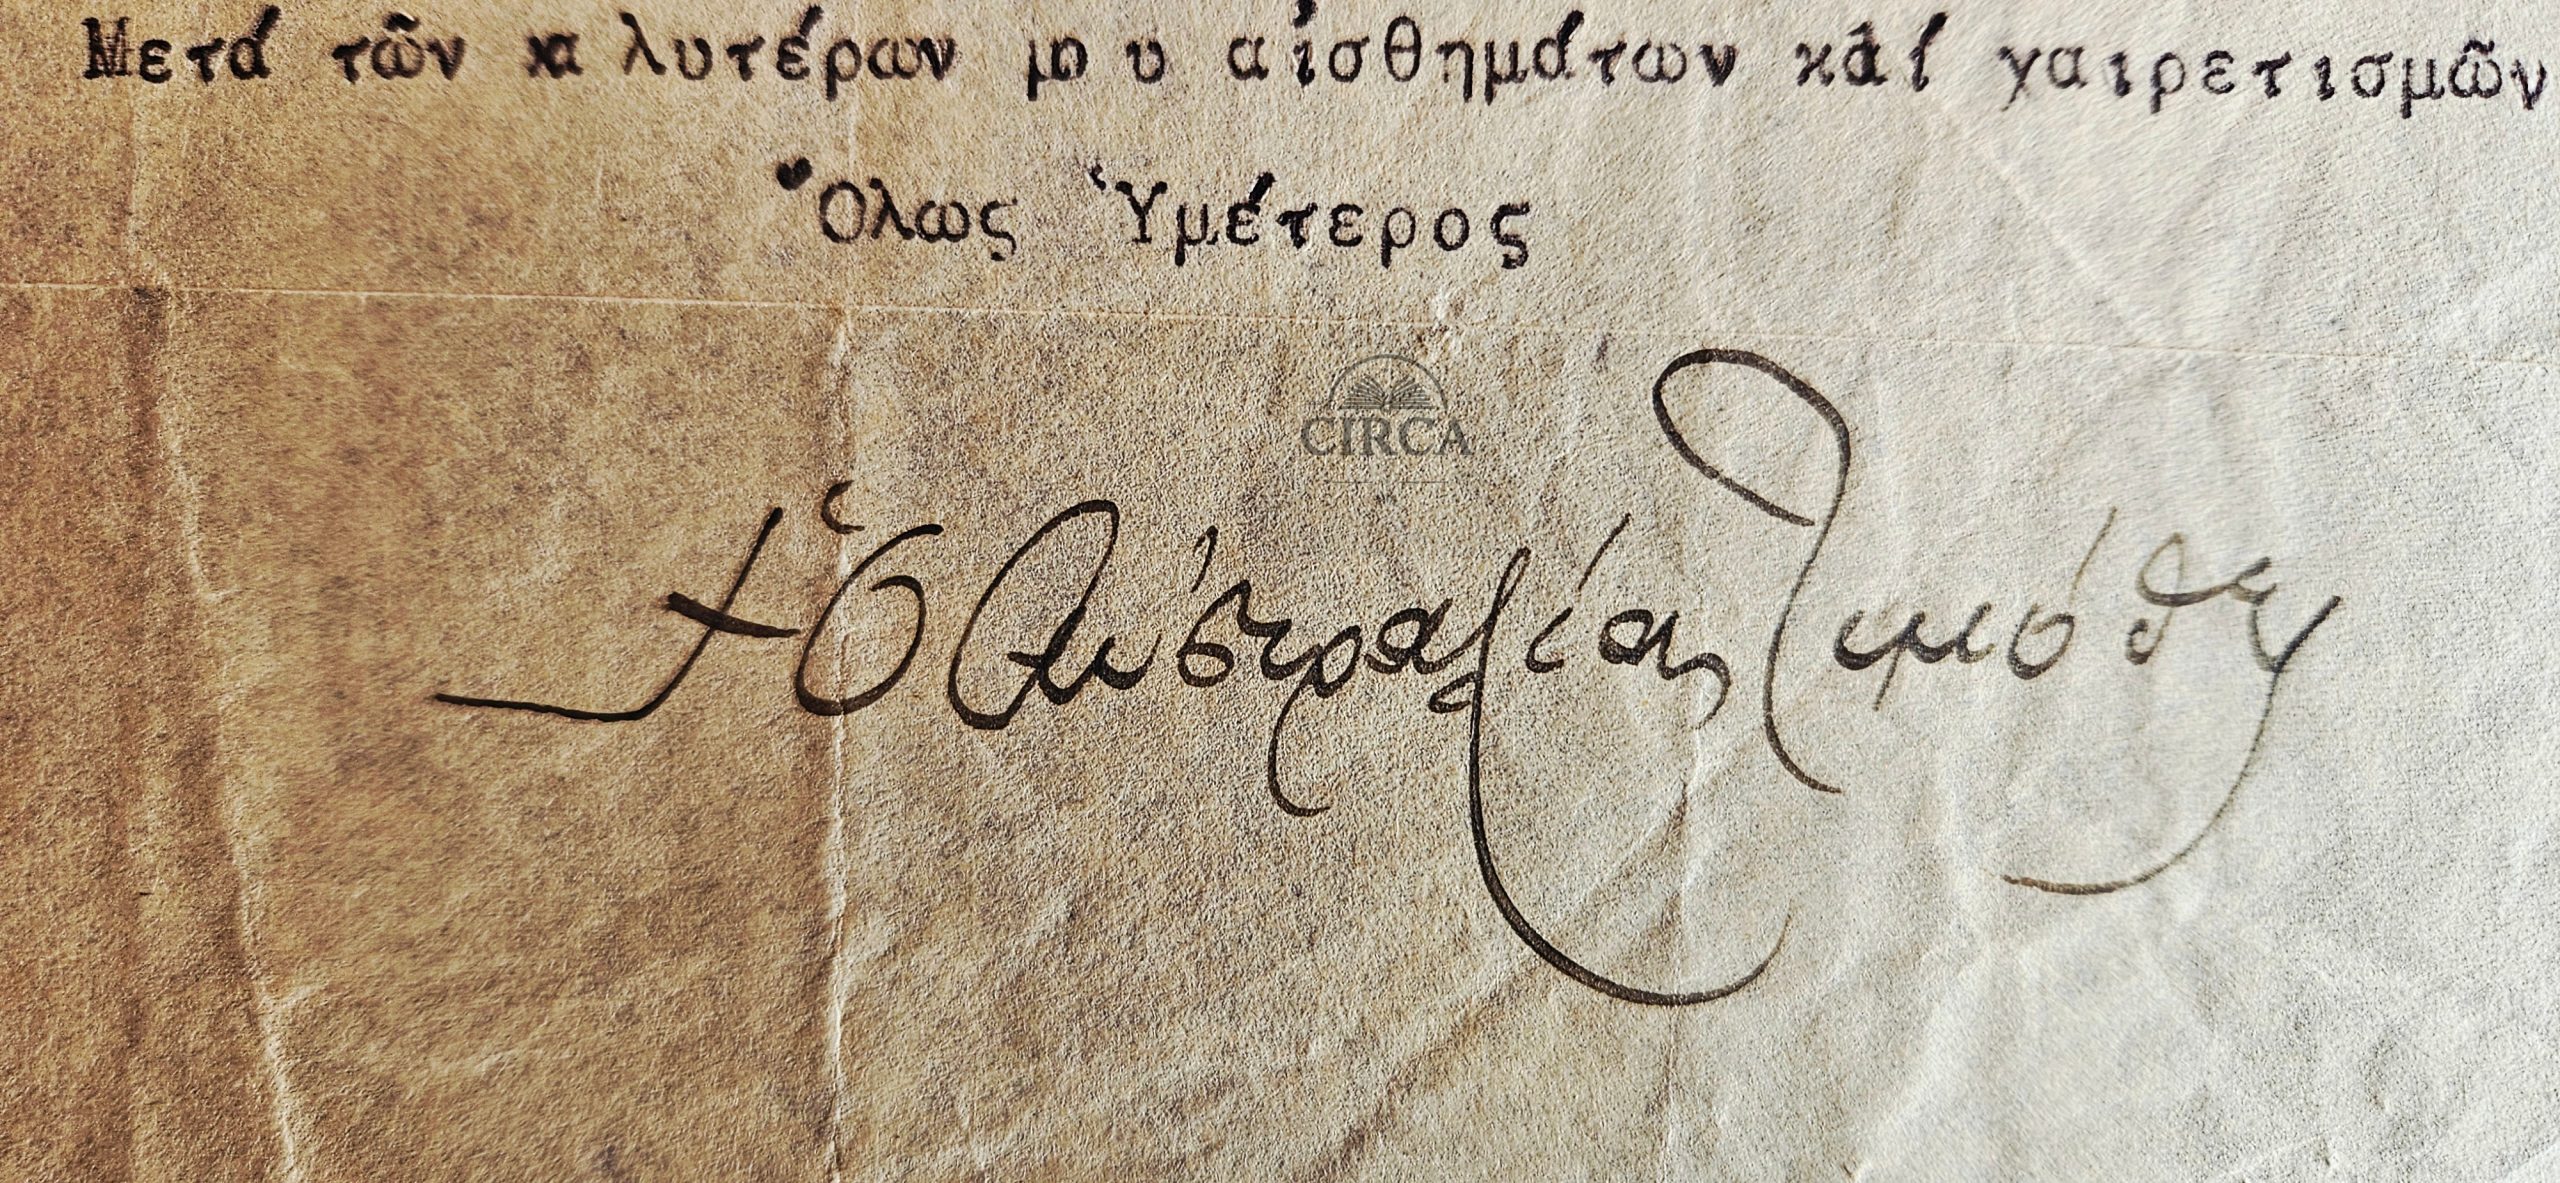 Μετά τῶν καλυτέρων μου αἰσθημάτων καί χαιρετισμῶν
Ὅλως Ὑμέτερος
CIRCA
† Ὁ Αὐστραλίας Τιμόθεος